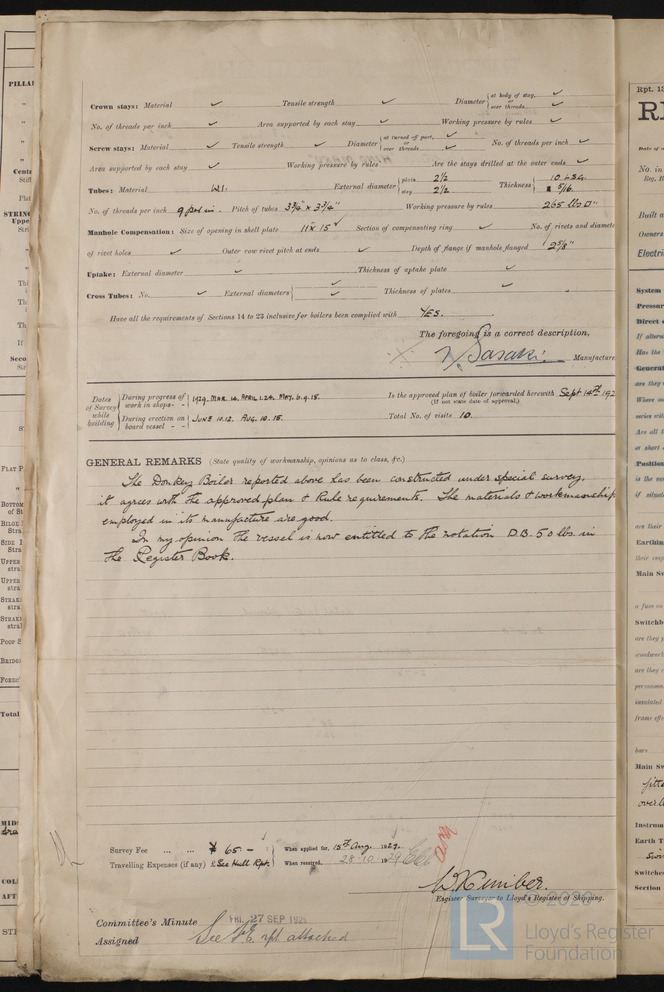 Crown stays: Material ✓ Tensile strength ✓ Diameter { at body of stay, ✓ or over threads ✓
No. of threads per inch ✓ Area supported by each stay ✓ Working pressure by rules ✓
Screw stays: Material ✓ Tensile strength ✓ Diameter { at turned off part, ✓ or over threads ✓ No. of threads per inch ✓
Area supported by each stay ✓ Working pressure by rules Are the stays drilled at the outer ends ✓
Tubes: Material W.I. External diameter { plain 2½ stay 2½ Thickness { 10 L.S.G. 5/16
No. of threads per inch 9 per in. Pitch of tubes 3¾" x 3¾" Working pressure by rules 265 lbs □"
Manhole Compensation: Size of opening in shell plate 11" x 15" ✓ Section of compensating ring ✓ No. of rivets and diamete
of rivet holes ✓ Outer row rivet pitch at ends ✓ Depth of flange if manhole flanged 2⅝"
Uptake: External diameter ✓ Thickness of uptake plate ✓
Cross Tubes: No. ✓ External diameters { ✓ ✓ Thickness of plates ✓
Have all the requirements of Sections 14 to 23 inclusive for boilers been complied with YES.
The foregoing is a correct description,
Sasaki Manufacture
Dates of Survey while building { During progress of work in shops - - 1929. MAR. 14. APRIL 1.24. MAY. 6.9.15.
During erection on board vessel - - JUNE 10.12. AUG. 10. 15.
Is the approved plan of boiler forwarded herewith Sept 14th 192
(If not state date of approval.)
Total No. of visits 10.
GENERAL REMARKS (State quality of workmanship, opinions as to class, &c.)
The Donkey Boiler reported above has been constructed under special survey,
it agrees with the approved plan & Rule requirements. The materials & workmanship
employed in its manufacture are good.
In my opinion the vessel is now entitled to the notation D.B. 50 lbs in
the Register Book.
Survey Fee ... ... ¥ 65. -
When applied for, 15th Aug. 1929.
Travelling Expenses (if any) £ See Hull Rpt.
When received, 28.10 1929
Engineer Surveyor to Lloyd's Register of Shipping.
Committee's Minute FRI. 27 SEP 1929
Assigned See F.E. rpt. attached
© 2020
LR
Lloyd's Register
Foundation
PILLA
STRING
Total
Rpt. 13
Date of
No. in
Reg.
Built a
Owners
Electri
System
Pressur
Direct
If altern
Has the
Generat
are they
Where
series wi
Are all
or short
Position
is the
if situat
are their
Earthin
are their
Main Sw
a fuse on
Switchb
are they
woodwor
are they
insulated
frame
bars
Main Sw
fitte
over
Instrum
Earth T
Switches
Section